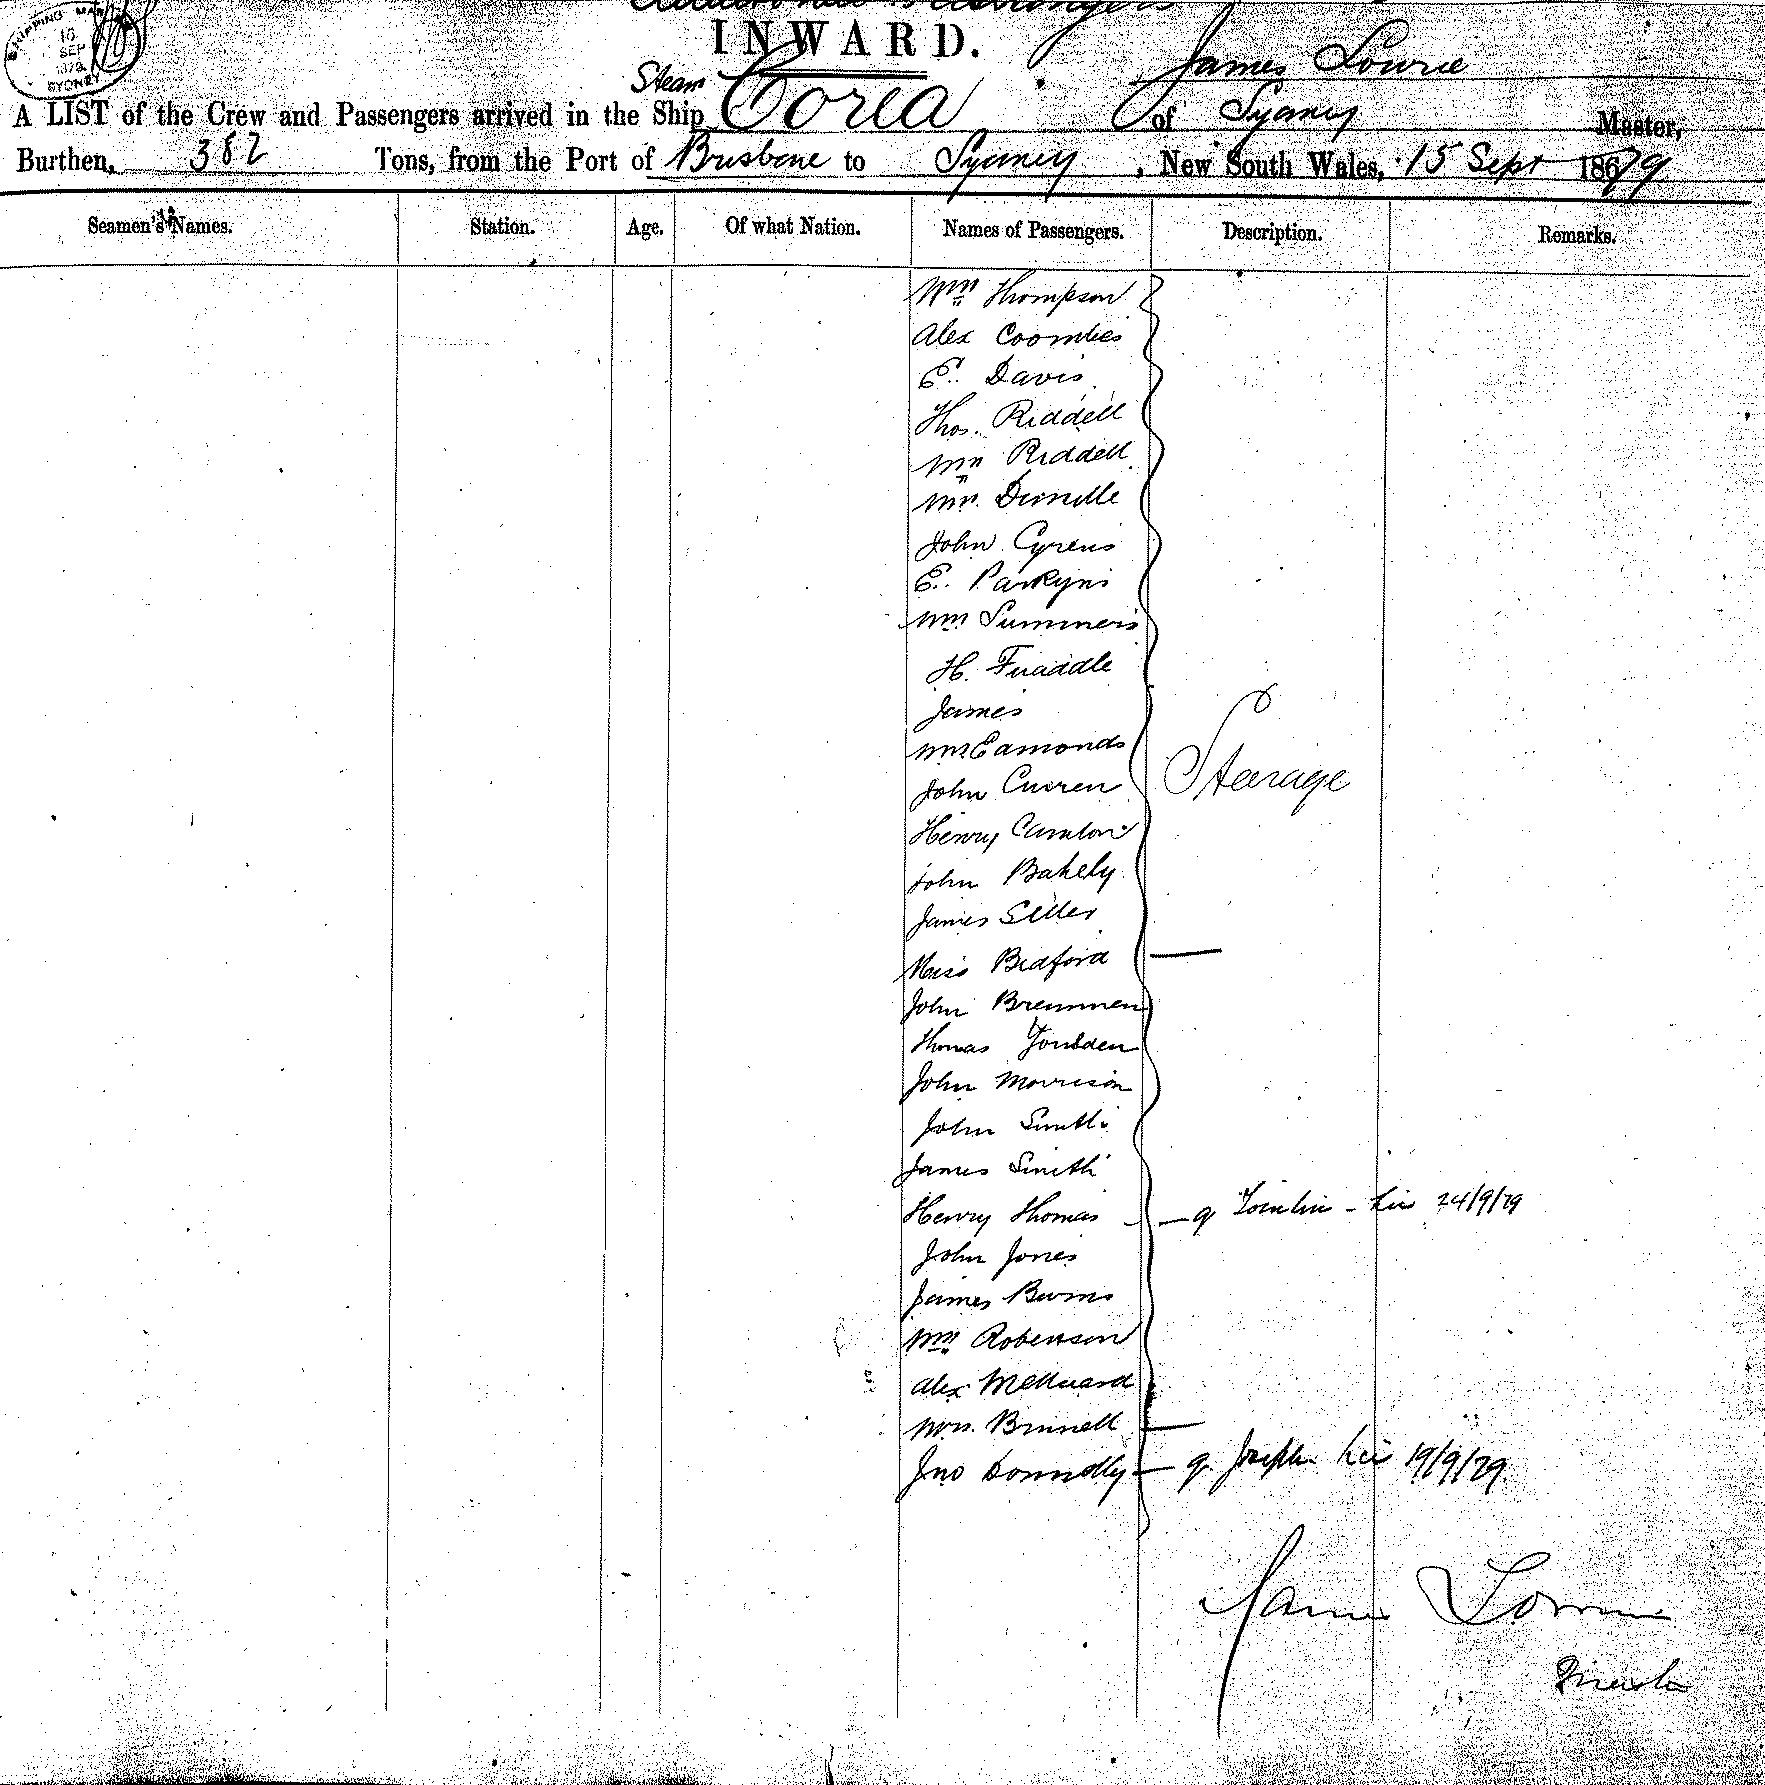 SHIPPING MAS
SEP
SYDNEY
Additional Passengers
INWARD.
James Lowrie
Steam
A LIST of the Crew and Passengers arrived in the Ship Corea of Sydney Master,
Burthen, 382 Tons, from the Port of Brisbane to Sydney, New South Wales, 15 Sept 1879
Seamen's Names. Station. Age. Of what Nation. Names of Passengers. Description. Remarks.
Wm Thompson
Alex Coombes
E. Davis
Thos. Riddell
Wm Riddell
Wm.
John Cyrens
E. Parkyns
Wm Summers
H.
James
Wm Edmonds
John Curren
Henry
John Bakely
James
Miss Bedford
John Brennnen
Thomas
John Morrison
John Smith
James Smith
Henry Thomas 24/9/79
John Jones
James Burns
Wm Robertson
Alex
Mrs. Brunell
Jno Donnelly Joseph 19/9/79
Stearage
James Lowrie
Master